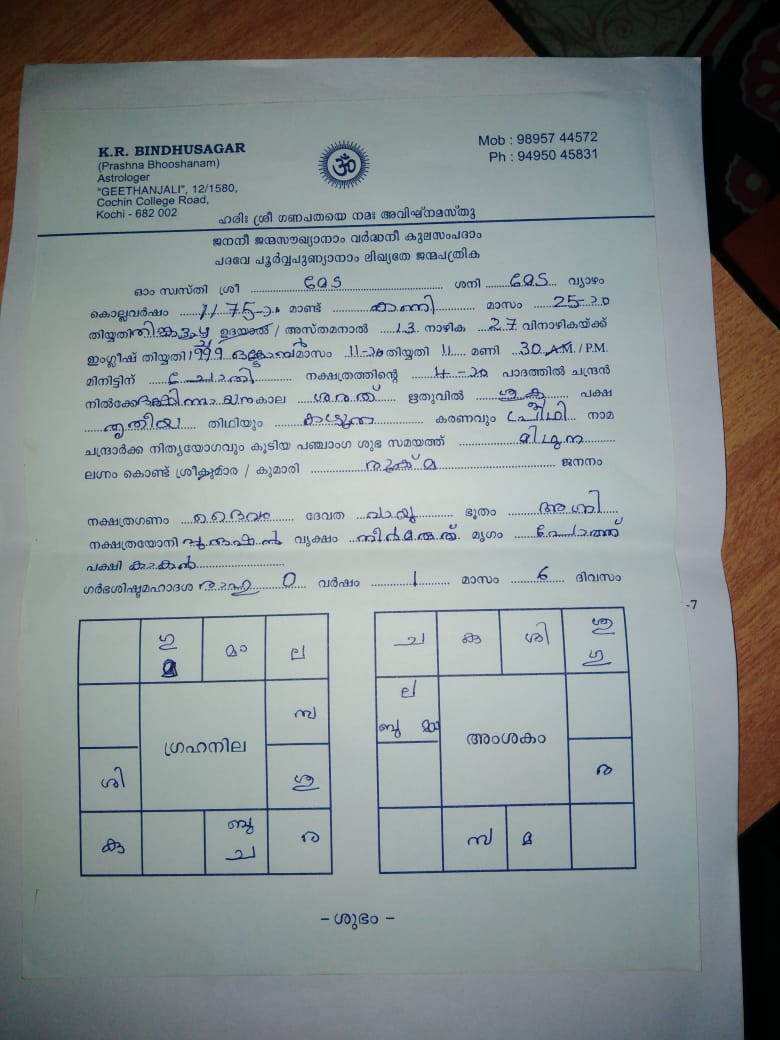 K.R. BINDHUSAGAR
(Prashna Bhooshanam)
Astrologer
"GEETHANJALI", 12/1580,
Cochin College Road,
Kochi - 682 002
Mob : 98957 44572
Ph : 94950 45831
ഹരിഃ ശ്രീ ഗണപതയെ നമഃ അവിഘ്നമസ്തു
ജനനീ ജന്മസൗഖ്യാനാം വർദ്ധനീ കുലസംപദാം
പദവേ പൂർവ്വപുണ്യാനാം ലിഖ്യതേ ജന്മപത്രിക
ഓം സ്വസ്തി ശ്രീ ശനി വ്യാഴം
കൊല്ലവർഷം 1175-ാം മാണ്ട് കന്നി മാസം 25-ാം
തിയ്യതി തിങ്കളാഴ്ച ഉദയാൽ / അസ്തമനാൽ 13 നാഴിക 27 വിനാഴികയ്ക്ക്
ഇംഗ്ലീഷ് തിയ്യതി 1999 ഒക്ടോബർ മാസം 11-ാം തിയ്യതി 11 മണി 30 A.M. / P.M.
മിനിട്ടിന് ചോതി നക്ഷത്രത്തിന്റെ 4-ാം പാദത്തിൽ ചന്ദ്രൻ
നിൽക്കേ ദക്ഷിണായനകാല ശരത് ഋതുവിൽ ശുക്ല പക്ഷ
തൃതീയ തിഥിയും കരണവും പ്രീതി നാമ
ചന്ദ്രാർക്ക നിത്യയോഗവും കൂടിയ പഞ്ചാംഗ ശുഭ സമയത്ത്
ലഗ്നം കൊണ്ട് ശ്രീകുമാര / കുമാരി ജനനം
നക്ഷത്രഗണം ദൈവം ദേവത വായു ഭൂതം അഗ്നി
നക്ഷത്രയോനി പുരുഷൻ വൃക്ഷം നീർമരുത് മൃഗം പോത്ത്
പക്ഷി കാകൻ
ഗർഭശിഷ്ടമഹാദശ രാഹു 0 വർഷം 1 മാസം 6 ദിവസം
-7
ഗു മാ ല
മ
സ
ഗ്രഹനില
ശി ശു
കു ബു ര
ച
ച കു ശി ശു
ഗു
ല
ബു മാ
അംശകം
ര
സ മ
– ശുഭം –